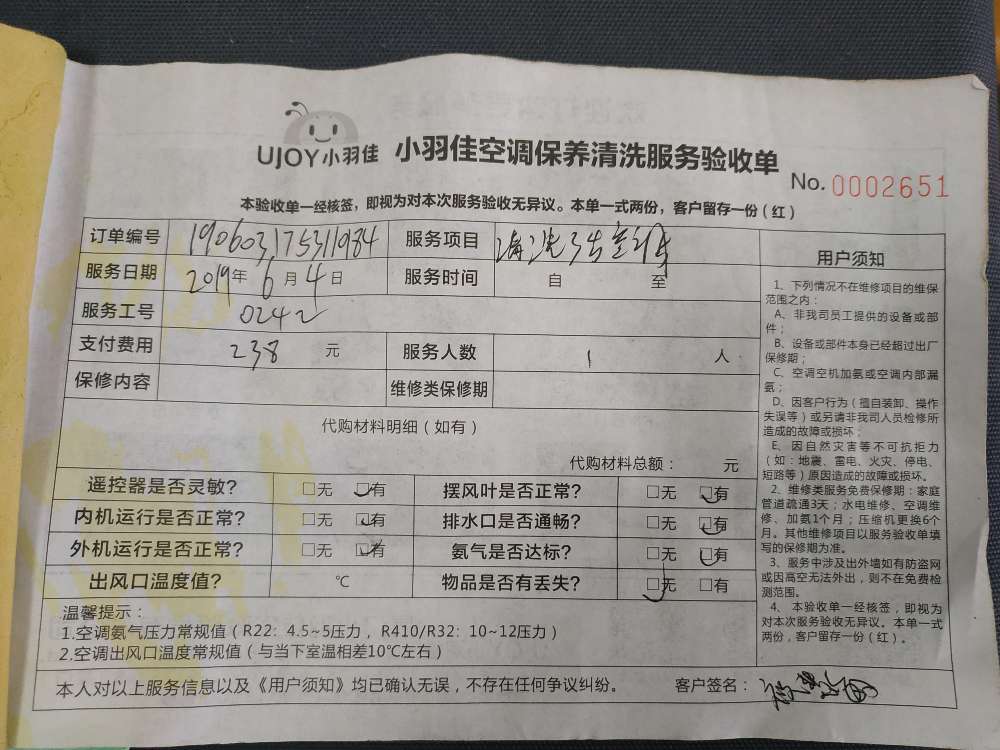 UJOY小羽佳 小羽佳空调保养清洗服务验收单
No. 0002651
本验收单一经核签，即视为对本次服务验收无异议。本单一式两份，客户留存一份（红）
订单编号 190603175311984 服务项目
服务日期 2019年6月4日 服务时间 自 至
服务工号 0242
支付费用 238 元 服务人数 1 人
保修内容 维修类保修期
代购材料明细（如有）
代购材料总额： 元
遥控器是否灵敏? □无 □有 摆风叶是否正常? □无 □有
内机运行是否正常? □无 □有 排水口是否通畅? □无 □有
外机运行是否正常? □无 □有 氨气是否达标? □无 □有
出风口温度值? ℃ 物品是否有丢失? □无 □有
温馨提示：
1.空调氨气压力常规值（R22：4.5~5压力，R410/R32：10~12压力）
2.空调出风口温度常规值（与当下室温相差10℃左右）
本人对以上服务信息以及《用户须知》均已确认无误，不存在任何争议纠纷。 客户签名：
用户须知
1、下列情况不在维修项目的维保
范围之内：
A、非我司员工提供的设备或部
件；
B、设备或部件本身已经超过出厂
保修期；
C、空调空机加氨或空调内部漏
氨；
D、因客户行为（擅自装卸、操作
失误等）或另请非我司人员检修所
造成的故障或损坏；
E、因自然灾害等不可抗拒力
（如：地震、雷电、火灾、停电、
短路等）原因造成的故障或损坏。
2、维修类服务免费保修期：家庭
管道疏通3天；水电维修、空调维
修、加氨1个月；压缩机更换6个
月。其他维修项目以服务验收单填
写的保修期为准。
3、服务中涉及出外墙如有防盗网
或因高空无法外出，则不在免费检
测范围。
4、本验收单一经核签，即视为
对本次服务验收无异议。本单一式
两份，客户留存一份（红）。